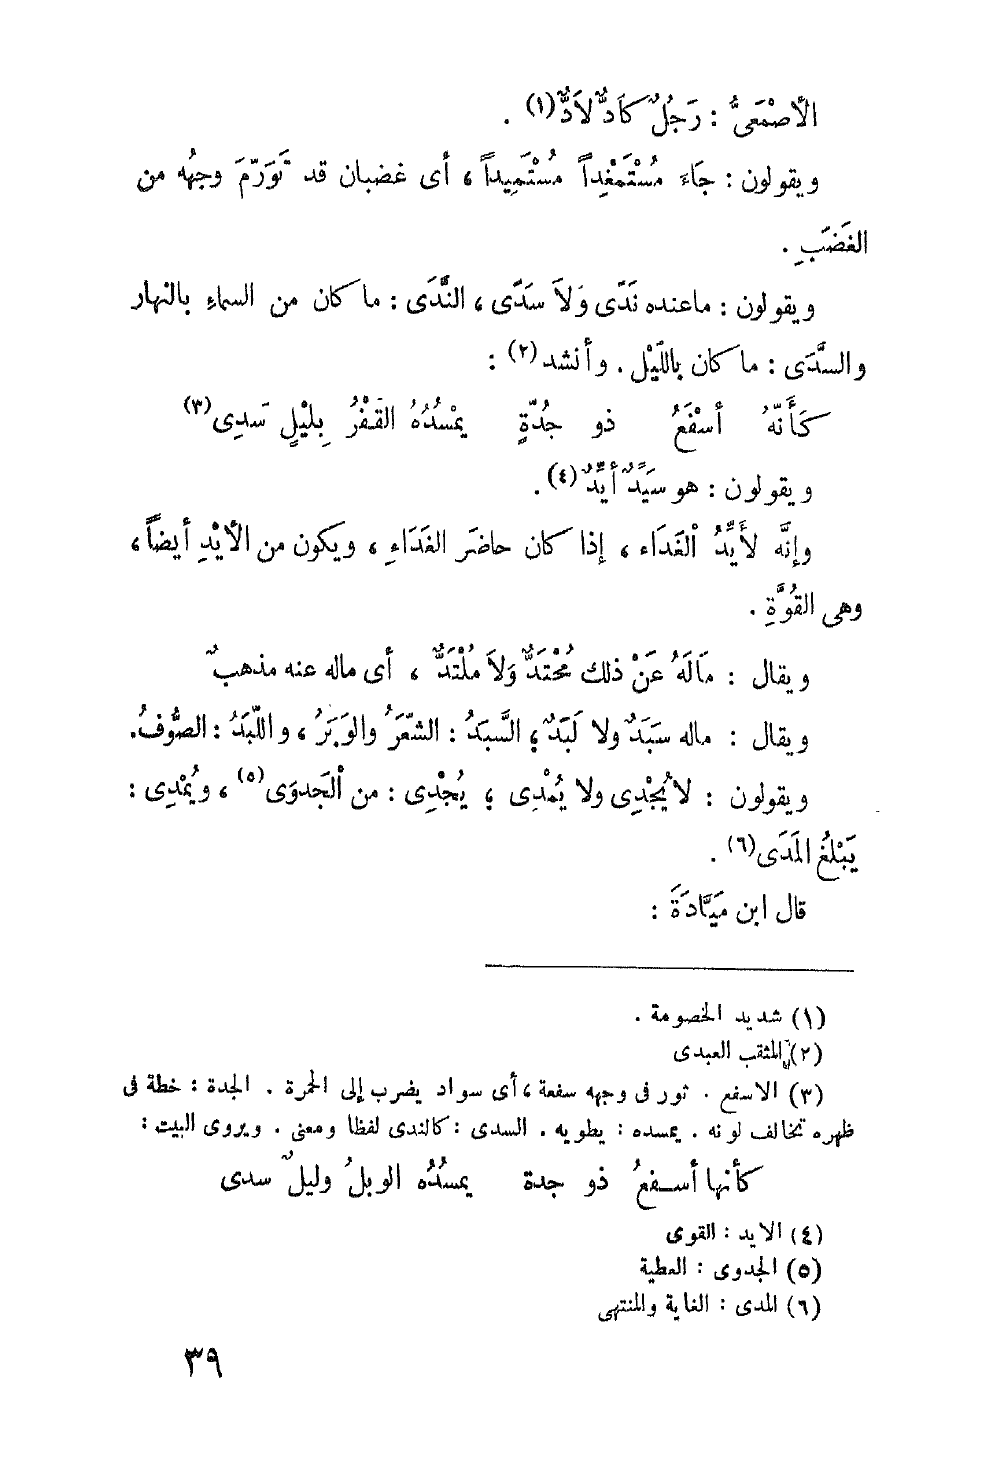 الأصْمَعىُّ : رَجُلٌ كَادٌّ لاَدٌّ(١) .
ويقولون : جَاءَ مُسْتَمْغِداً مُسْتَمِيداً ، أى غضبان قد تَوَرّمَ وجهُه من
الغَضَبِ .
ويقولون : ماعنده نَدًى وَلاَ سَدًى ، النَّدَى : ماكان من السماءِ بالنهار
والسَّدَى : ماكان باللَّيْل . وأنشد(٢) :
كَأَنّهُ أسْفَعُ ذو جُدّةٍ يمْسُدُهُ القَفْرُ بِليْلٍ سَدِى(٣)
ويقولون : هو سَيِّدٌ أيِّدٌ(٤) .
وإنَّه لأَيِّدُ الْغَدَاء ، إذا كان حاضَر الغَدَاءِ ، ويكون من الأيْدِ أيضاً ،
وهى القُوَّةِ .
ويقال : مَالَهُ عَنْ ذلك مُحْتَدٌّ وَلاَ مُلْتَدٌّ ، أى ماله عنه مذهبٌ
ويقال : ماله سَبَدٌ ولا لَبَدٌ ؛ السَّبَدُ : الشّعَرُ والوَبَرُ ، واللّبَدُ : الصُّوفُ.
ويقولون : لا يُجْدِى ولا يُمْدِى ؛ يُجْدِى : من الْجَدوَى(٥) ، ويُمْدِى :
يَبْلغُ المَدَى(٦) .
قال ابن مَيَّادَةَ :
(١) شديد الخصومة .
(٢) المثقب العبدى
(٣) الاسفع . ثور فى وجهه سفعة ، أى سواد يضرب إلى الحمرة . الجدة : خطة فى
ظهره تخالف لونه . يمسده : يطويه . السدى : كالندى لفظا ومعنى . ويروى البيت :
كأنها أسـفعُ ذو جدة يمسُدُه الوبلُ وليلٌ سدى
(٤) الايد : القوى
(٥) الجدوى : العطية
(٦) المدى : الغاية والمنتهى
٣٩